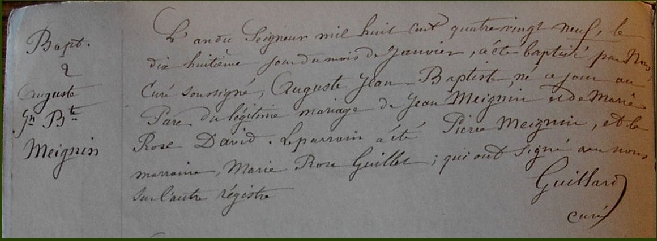 Bapt.
2
Auguste
Jn Bte
Meignin
L'an du Seigneur mil huit cent quatre vingt neuf, le
dix huitième jour du mois de Janvier, a été baptisé par Nous
Curé soussigné, Auguste Jean Baptiste, né ce jour au
Parc du légitime mariage de Jean Meignin et de Marie
Rose David. Le parrain a été Pierre Meignin, et la
marraine, Marie Rose Guillet; qui ont signé avec nous
sur l'autre régistre
Guillard
curé